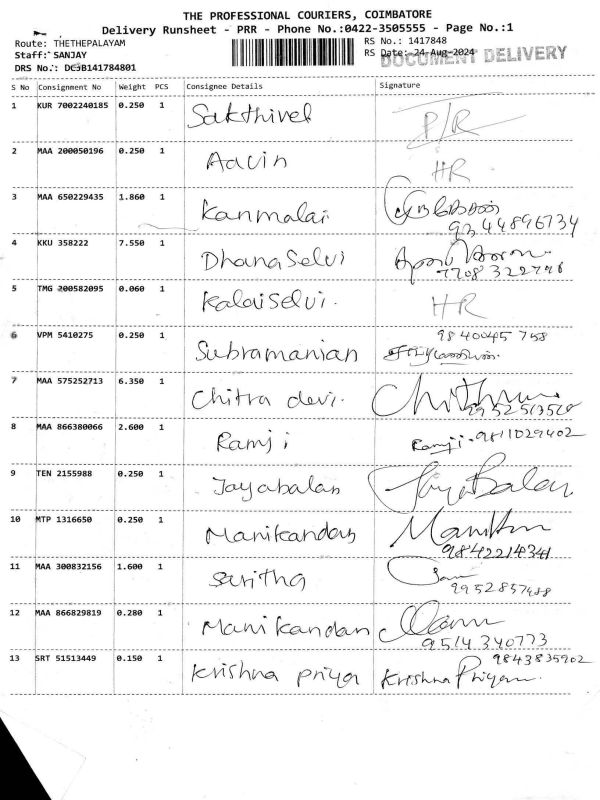 THE PROFESSIONAL COURIERS, COIMBATORE
Delivery Runsheet - PRR - Phone No.:0422-3505555 - Page No.:1
Route: THETHEPALAYAM
Staff: SANJAY
DRS No.: DCJB141784801
RS No.: 1417848
RS Date: 24-Aug-2024
DOCUMENT DELIVERY
S No Consignment No Weight PCS Consignee Details Signature
1 KUR 7002240185 0.250 1 Sakthivel P/R
2 MAA 200050196 0.250 1 Aavin HR
3 MAA 650229435 1.860 1 Kanmalai
9344896734
4 KKU 358222 7.550 1 Dhanaselvi
7708322776
5 TMG 200582095 0.060 1 Kalaiselvi. HR
6 VPM 5410275 0.250 1 Subramanian 9840045758
7 MAA 575252713 6.350 1 Chitra devi.
8 MAA 866380066 2.600 1 Ramji Ramji. 9811029402
9 TEN 2155988 0.250 1 Jayabalan JayaBalan
10 MTP 1316650 0.250 1 Manikandan
9842214341
11 MAA 300832156 1.600 1 Saritha
9952857488
12 MAA 866829819 0.280 1 Manikandan
9514340773
13 SRT 51513449 0.150 1 Krishna priya 9843835902
Krishna Priya